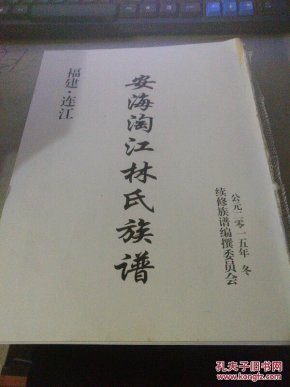 福建·连江
安海淘江林氏族谱
公元二零一五年 冬
续修族谱编撰委员会
孔夫子旧书网